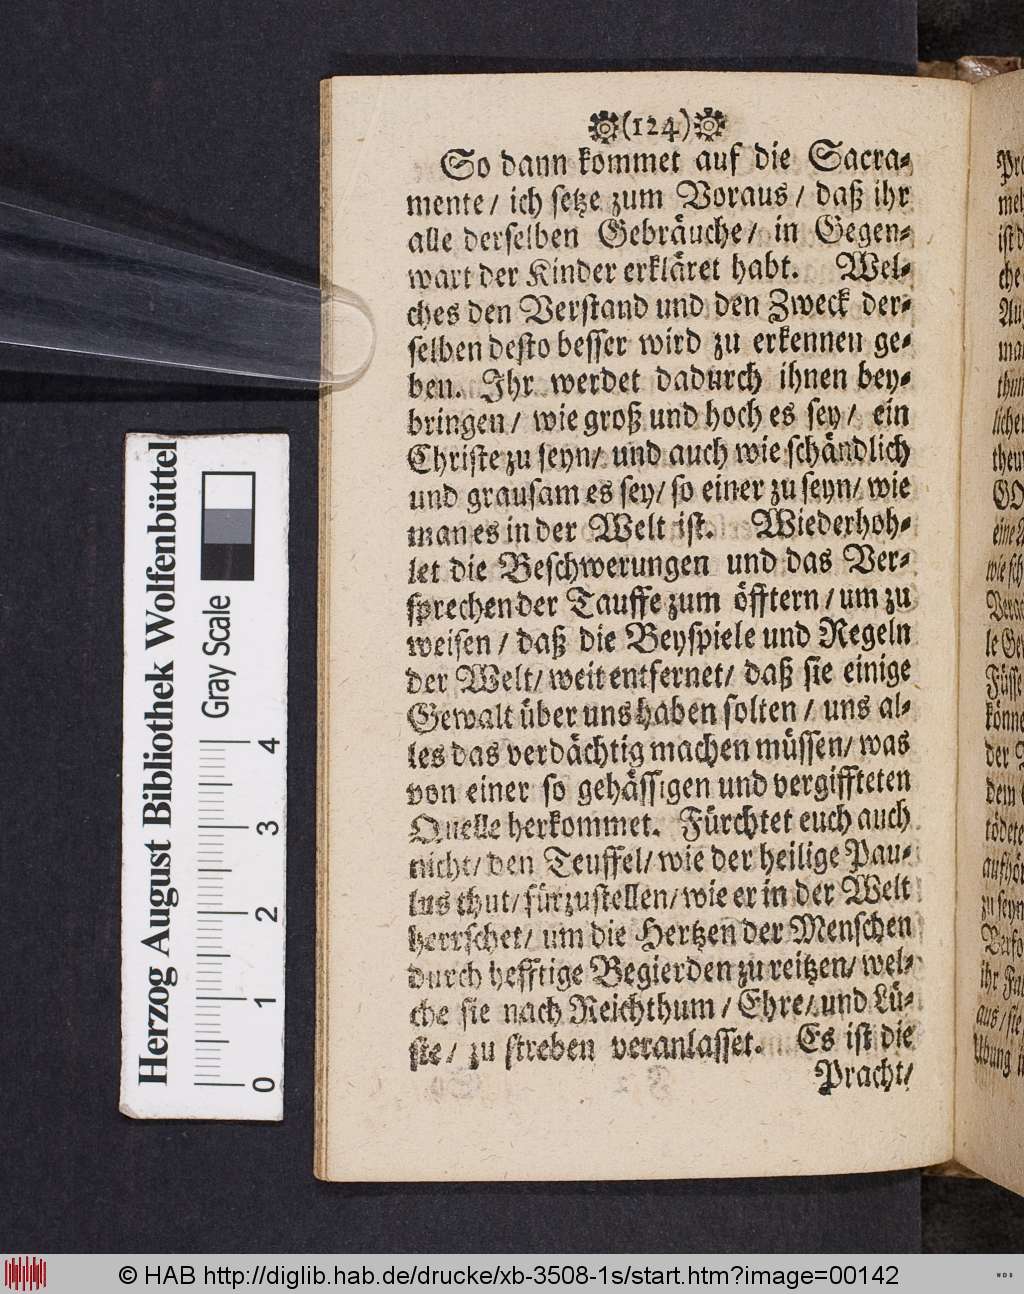 (124)
So dann kommet auf die Sacra-
mente/ ich setze zum Voraus/ daß ihr
alle derselben Gebräuche/ in Gegen-
wart der Kinder erkläret habt. Wel-
ches den Verstand und den Zweck der-
selben desto besser wird zu erkennen ge-
ben. Ihr werdet dadurch ihnen bey-
bringen/ wie groß und hoch es sey/ ein
Christe zu seyn/ und auch wie schändlich
und grausam es sey/ so einer zu seyn/ wie
man es in der Welt ist. Wiederhoh-
let die Beschwerungen und das Ver-
sprechen der Tauffe zum öfftern/ um zu
weisen/ daß die Beyspiele und Regeln
der Welt/ weit entfernet/ daß sie einige
Gewalt über uns haben solten/ uns al-
les das verdächtig machen müssen/ was
von einer so gehässigen und vergiffteten
Quelle herkommet. Fürchtet euch auch
nicht/ den Teuffel/ wie der heilige Pau-
lus thut/ fürzustellen/ wie er in der Welt
herrschet/ um die Hertzen der Menschen
durch hefftige Begierden zu reitzen/ wel-
che sie nach Reichthum/ Ehre/ und Lü-
ste/ zu streben veranlasset. Es ist die
Pracht/
Herzog August Bibliothek Wolfenbüttel
Gray Scale
0 1 2 3 4
© HAB http://diglib.hab.de/drucke/xb-3508-1s/start.htm?image=00142